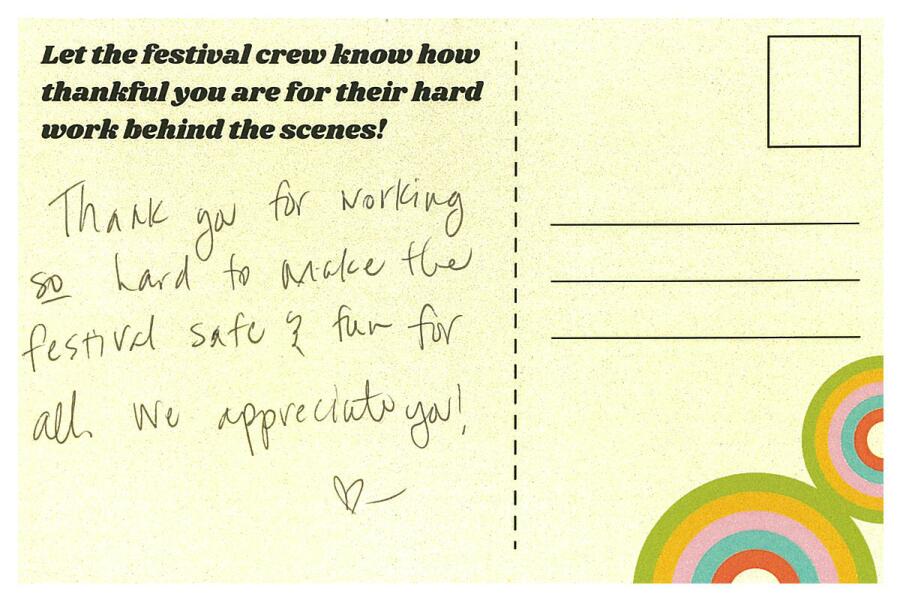 Let the festival crew know how
thankful you are for their hard
work behind the scenes!
Thank you for working
so hard to make the
festival safe & fun for
all. We appreciate you!